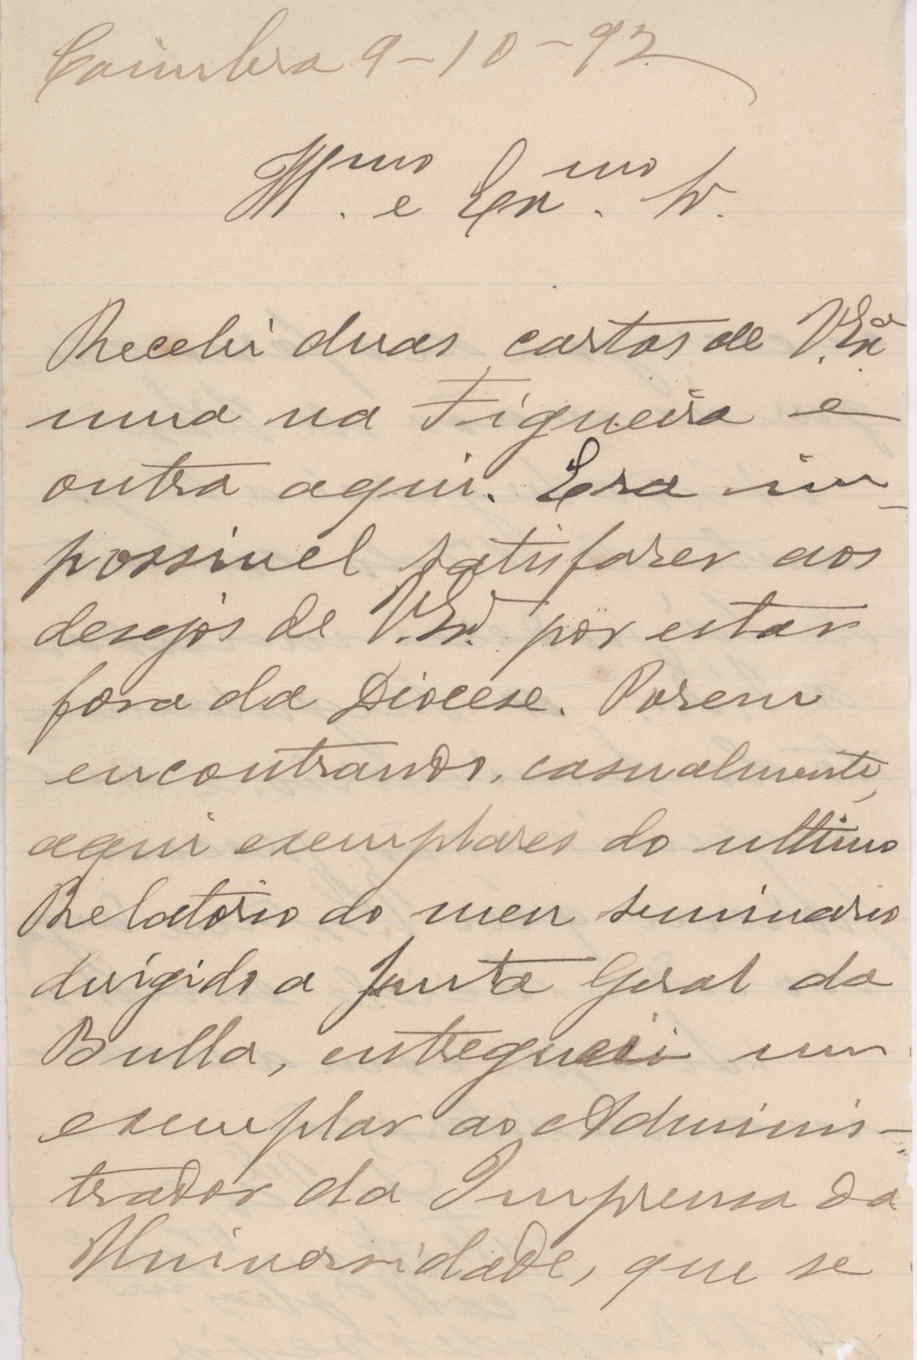 Coimbra 9-10-92
Illmo. e Exmo. Sr.
Recebi duas cartas de V. Exª
uma na Figueira e
outra aqui. Era im-
possivel satisfazer aos
desejos de V. Exª. por estar
fora da Diocese. Porem
encontrando, casualmente,
aqui exemplares do ultimo
Relatorio do meu seminario
dirigido a Junta Geral da
Bulla, entreguei um
exemplar ao Adminis-
trador da Imprensa da
Universidade, que se